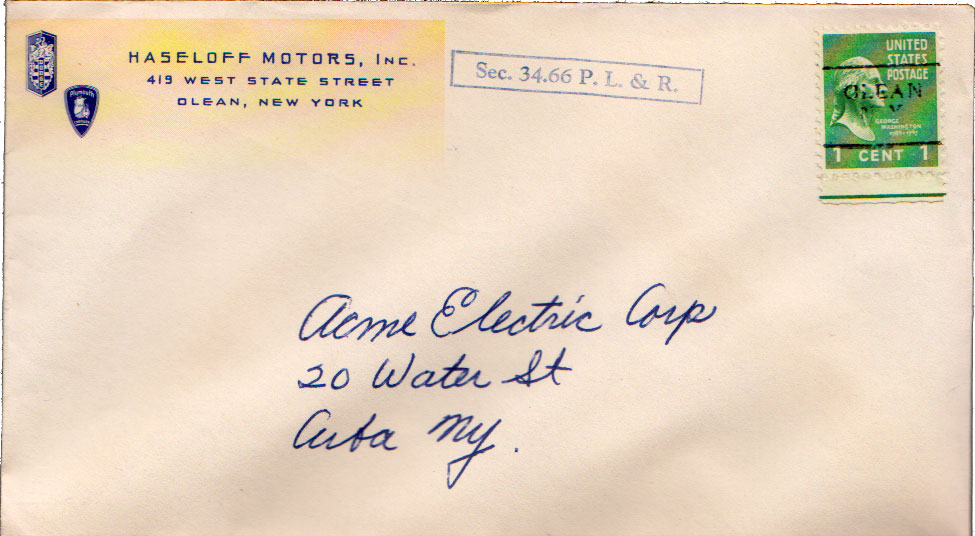 HASELOFF MOTORS, INC.
419 WEST STATE STREET
OLEAN, NEW YORK
Plymouth
Sec. 34.66 P. L. & R.
UNITED
STATES
POSTAGE
OLEAN
N. Y.
GEORGE
WASHINGTON
1 CENT 1
Acme Electric Corp
20 Water St
Cuba NY.